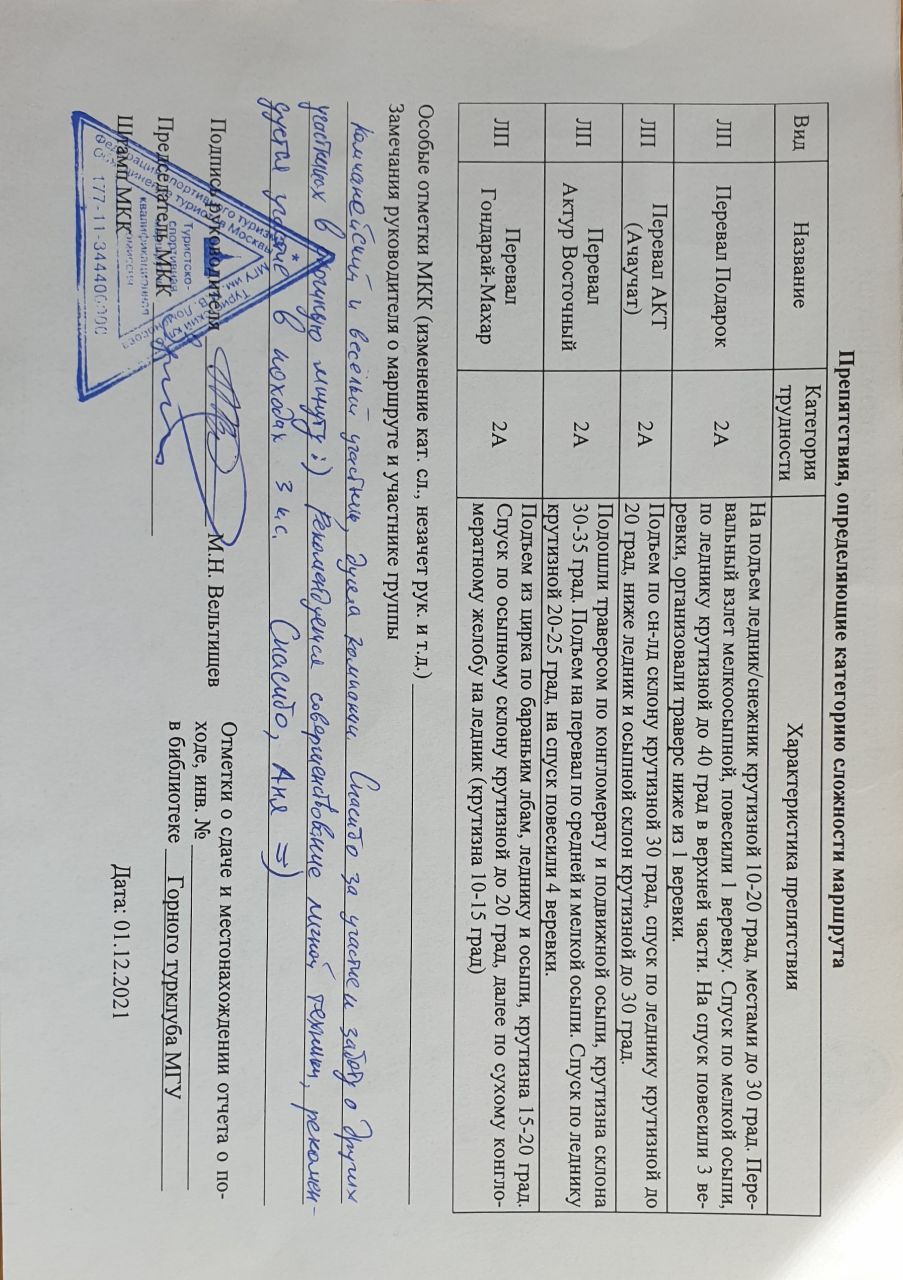 Препятствия, определяющие категорию сложности маршрута
Вид
Название
Категория
трудности
Характеристика препятствия
ЛП
Перевал Подарок
2А
На подъем ледник/снежник крутизной 10-20 град, местами до 30 град. Пере-
вальный взлет мелкоосыпной, повесили 1 веревку. Спуск по мелкой осыпи,
по леднику крутизной до 40 град в верхней части. На спуск повесили 3 ве-
ревки, организовали траверс ниже из 1 веревки.
ЛП
Перевал АКТ
(Ачаучат)
2А
Подъем по сн-лд склону крутизной 30 град, спуск по леднику крутизной до
20 град, ниже ледник и осыпной склон крутизной до 30 град.
ЛП
Перевал
Актур Восточный
2А
Подошли траверсом по конгломерату и подвижной осыпи, крутизна склона
30-35 град. Подъем на перевал по средней и мелкой осыпи. Спуск по леднику
крутизной 20-25 град, на спуск повесили 4 веревки.
ЛП
Перевал
Гондарай-Махар
2А
Подъем из цирка по бараньим лбам, леднику и осыпи, крутизна 15-20 град.
Спуск по осыпному склону крутизной до 20 град, далее по сухому конгло-
мератному желобу на ледник (крутизна 10-15 град)
Особые отметки МКК (изменение кат. сл., незачет рук. и т.д.)
Замечания руководителя о маршруте и участнике группы
Компанейский и весёлый участник, душа компании. Спасибо за участие и заботу о других
участниках в трудную минуту :) Рекомендуется совершенствование личной техники, рекомен-
дуется участие в походах 3 к.с. Спасибо, Аня =)
Подпись руководителя М.Н. Вельтищев
Председатель МКК
Штамп МКК
Отметки о сдаче и местонахождении отчета о по-
ходе, инв. №
в библиотеке Горного турклуба МГУ
Дата: 01.12.2021
Федерация спортивного туризма
туризма Москвы
Туристско-
спортивная
квалификационная
комиссия
177-11-34440